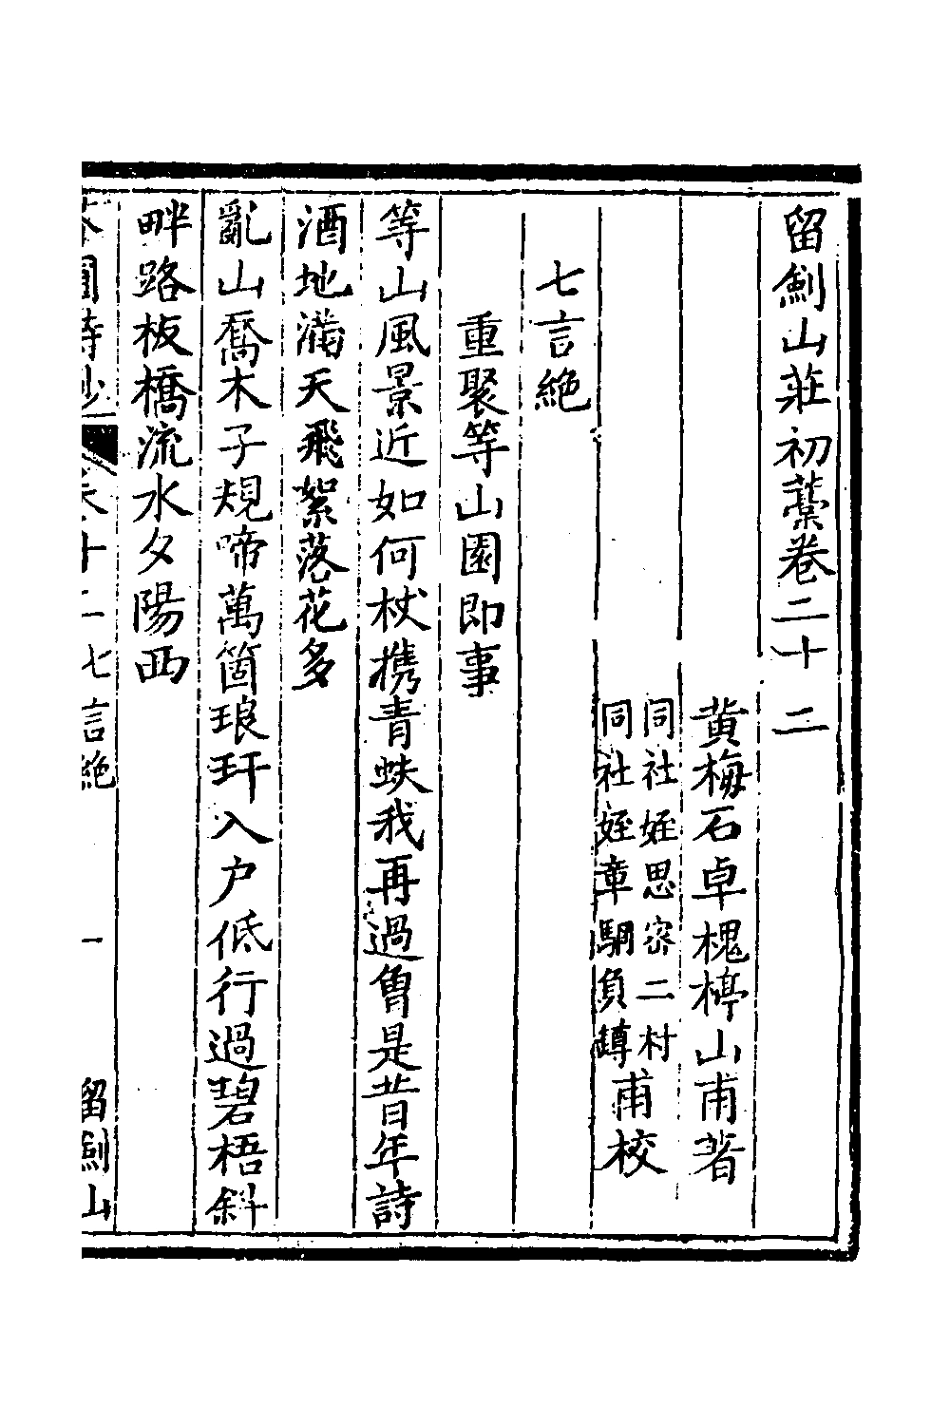 留劍山莊初藁卷二十二
黃梅石卓槐楟山甫著
同社姪思容二村
同社姪章騆負鐏甫校
七言絶
重聚等山園即事
等山風景近如何杖攜青蚨我再過曾是昔年詩
酒地滿天飛絮落花多
亂山喬木子規啼萬箇琅玕入户低行過碧梧斜
畔路板橋流水夕陽西
卷十二七言絶 一 留劍山